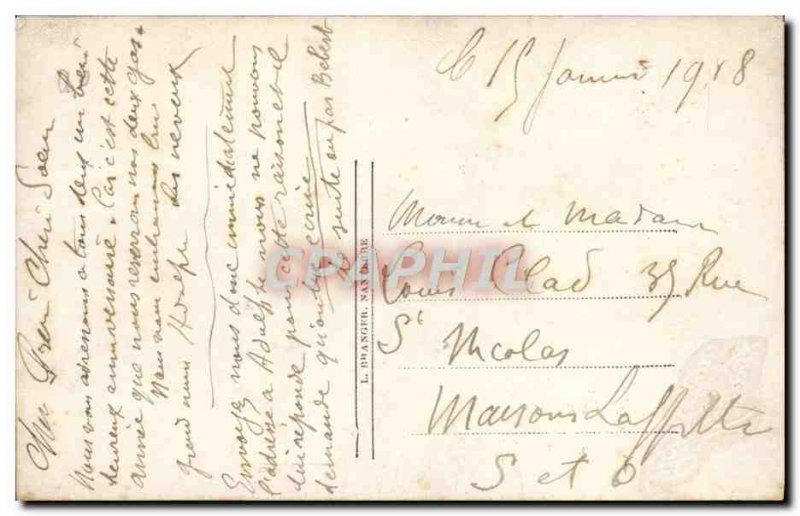 le 15 Janvier 1918
Mon Cher
Nous vous adressons a tous deux un
heureux anniversaire. c'est cette
année que nous reverrons nos deux
Nous vous embrassons bien
grand Adolphe des neveux
Envoyez nous donc immédiatement
l'adresse a Adolphe nous ne pouvons
lui répondre pour cette raison et il
demande qu'on lui écrive
de suite ou pas Bebert
L. BRANGER. NANTERRE
CPAPHIL
Monsieur et Madame
Louis Clad 35 Rue
St Nicolas
Maisons Laffitte
S et O